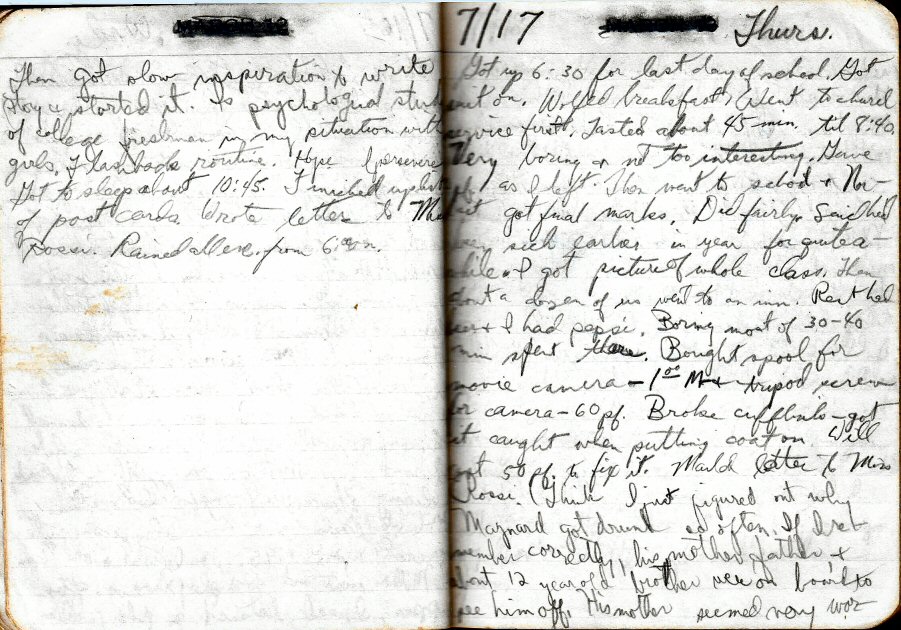 Then got slow inspiration to write
story & started it. Is psychological study
of college freshman in my situation with
girls, flashback routine. Hope I persevere
Got to sleep about 10:45. Finished up list
of post cards. Wrote letter to Miss
Rossi. Rained all eve. from 6:00 on.
7/17 Thurs.
Got up 6:30 for last day of school. Got
suit on. Wolfed breakfast, Went to church
service first, Lasted about 45 min. til 8:40.
Very boring or not too interesting. Gave
pf. as I left. Then went to school +
got final marks. Did fairly. Said had
been sick earlier in year for quite a
while. I got picture of whole class. Then
about a dozen of us went to an inn. Rest had
beer + I had pepsi. Boring most of 30-40
min spent there. Bought spool for
movie camera - 1.00 M + tripod screw
for camera - 60 pf. Broke cufflinks - got
it caught when putting coat on. Will
cost 50 pf. to fix it. Mailed letter to Miss
Rossi. Think I just figured out why
Maynard got drunk so often. If I re-
member correctly, his mother, father +
about 12 year old brother were on board to
see him off. His mother seemed very wor-